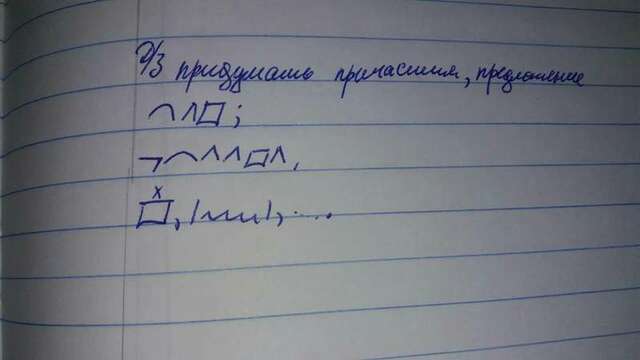 Д/З придумать причастия, предложение
⌒ ∧ □ ;
¬ ⌒ ∧ ∧ □ ∧ ,
х
□ , | ~~~ | , ....